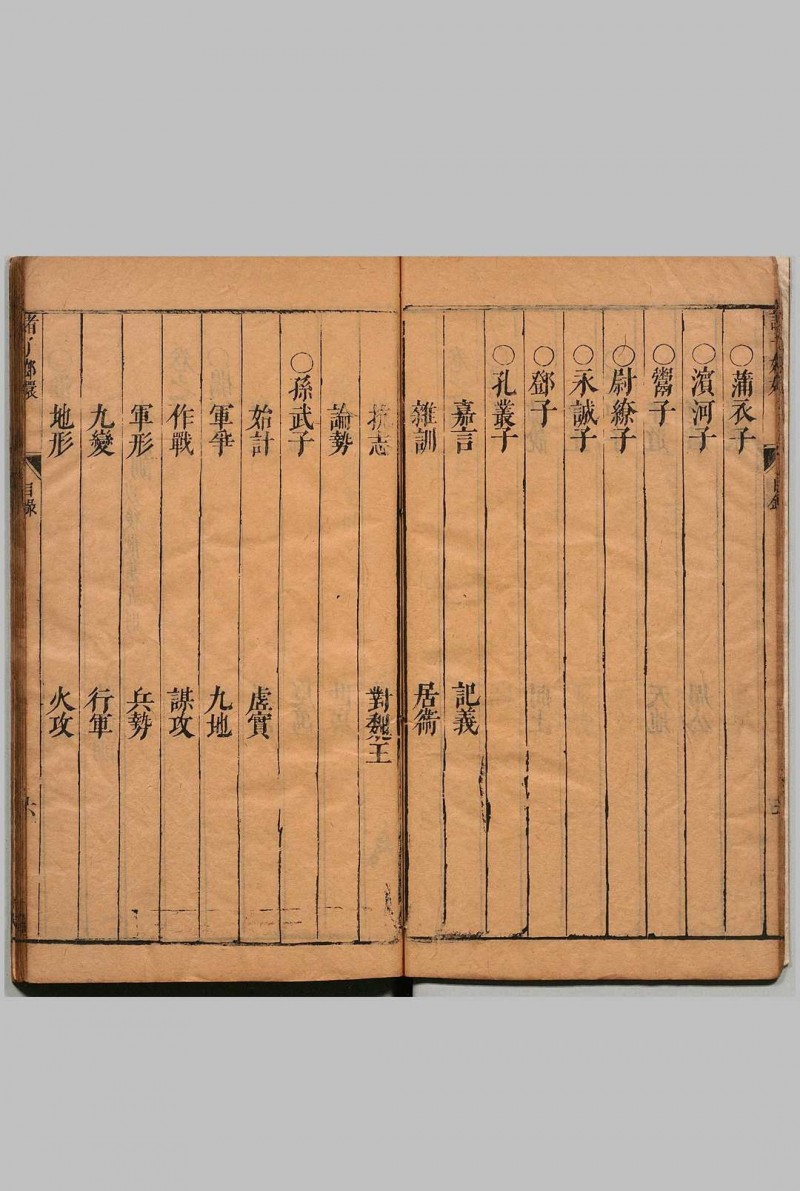 ○蒲衣子
○濵河子
○鬻子
○尉繚子
○永誠子
○鄧子
○孔叢子
嘉言 記義
雜訓 居衞
抗志 對魏王
論勢
○孫武子
始計 虚實
軍爭 九地
作戰 謀攻
軍形 兵勢
九變 行軍
地形 火攻
目録
六